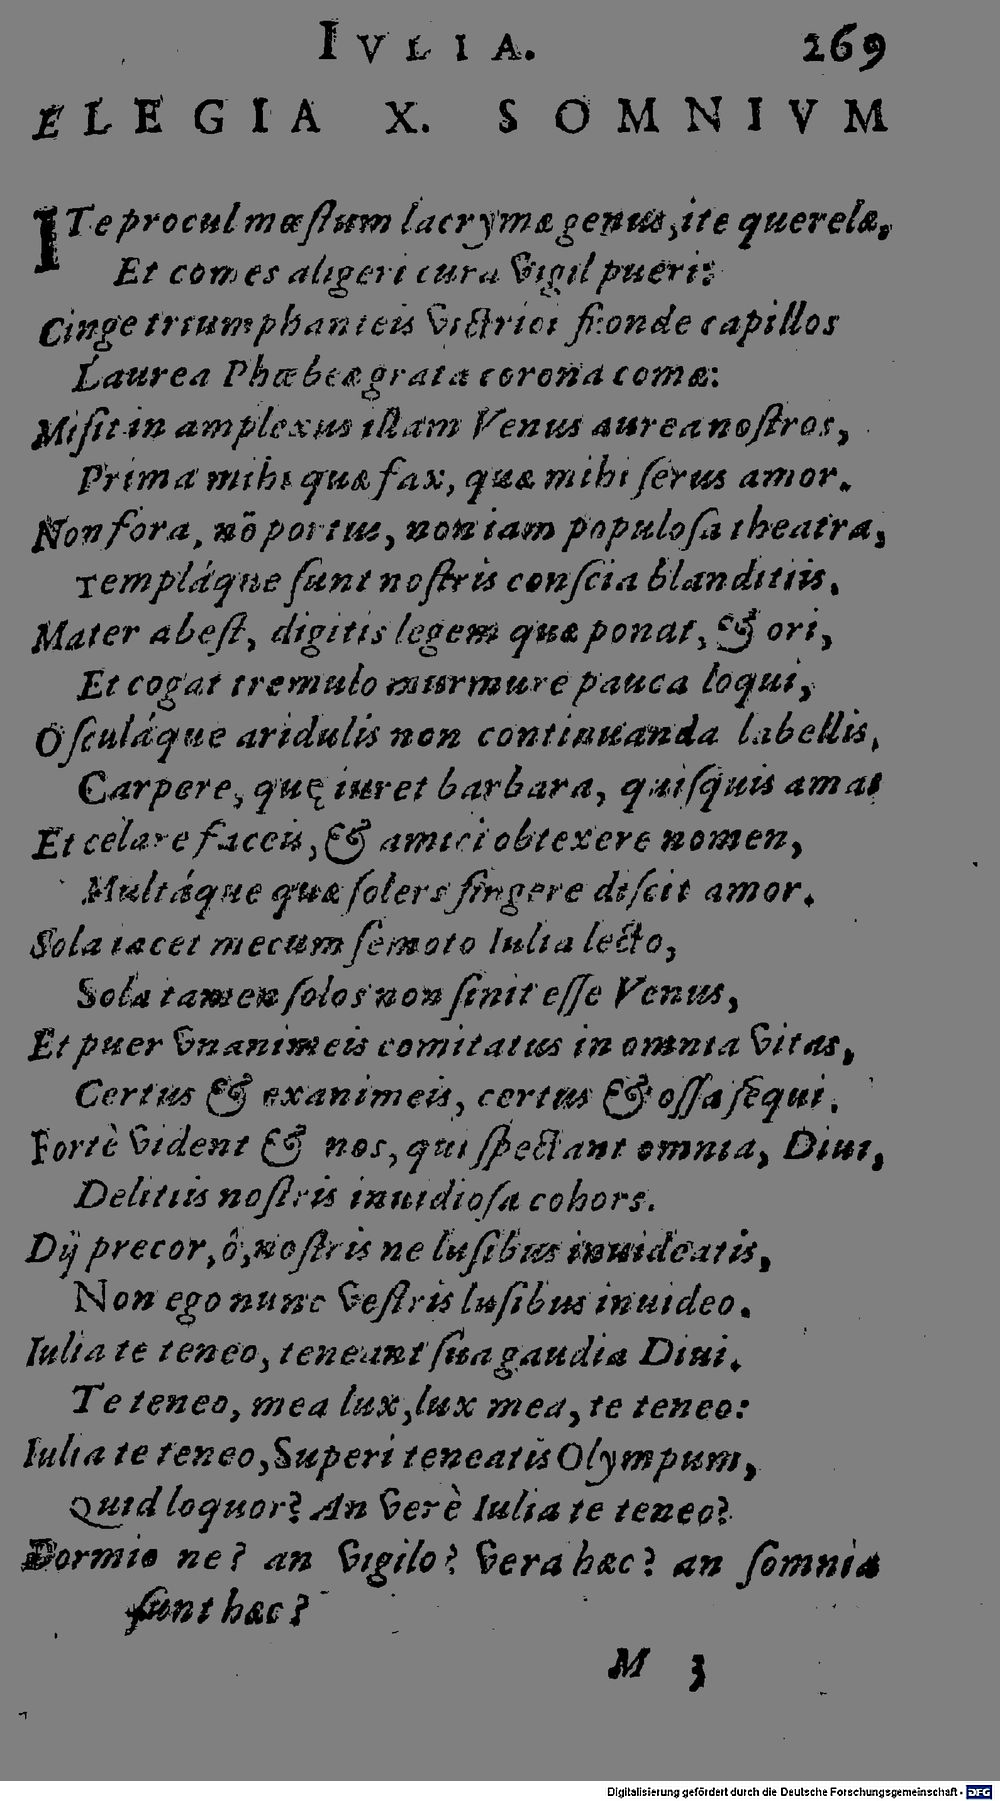 IVLIA. 269
ELEGIA X. SOMNIVM
ITe procul mæstum lacrymæ genus, ite querelæ,
Et comes aligeri cura vigil pueri:
Cinge triumphanteis victrici fronde capillos
Laurea Phœbeæ grata corona comæ:
Misit in amplexus illam Venus aurea nostros,
Prima mihi quæ fax, quæ mihi serus amor.
Non fora, nõ portus, non iam populosa theatra,
Templáque sunt nostris conscia blanditiis.
Mater abest, digitis legem quæ ponat, & ori,
Et cogat tremulo murmure pauca loqui,
Osculáque aridulis non continuanda labellis,
Carpere, quę iuret barbara, quisquis amat
Et celare faceis, & amici obtexere nomen,
Multáque quæ solers fingere discit amor.
Sola iacet mecum semoto Iulia lecto,
Sola tamen solos non sinit esse Venus,
Et puer vnanimeis comitatus in omnia vitas,
Certus & exanimeis, certus & ossa sequi.
Fortè vident & nos, qui spectant omnia, Diui,
Delitiis nostris inuidiosa cohors.
Dij precor, ô, nostris ne lusibus inuideatis,
Non ego nunc vestris lusibus inuideo.
Iulia te teneo, teneant sua gaudia Diui.
Te teneo, mea lux, lux mea, te teneo:
Iulia te teneo, Superi teneatis Olympum,
Quid loquor? An verè Iulia te teneo?
Dormio ne? an vigilo? vera hæc? an somnia
sunt hæc?
M 3
Digitalisierung gefördert durch die Deutsche Forschungsgemeinschaft - DFG